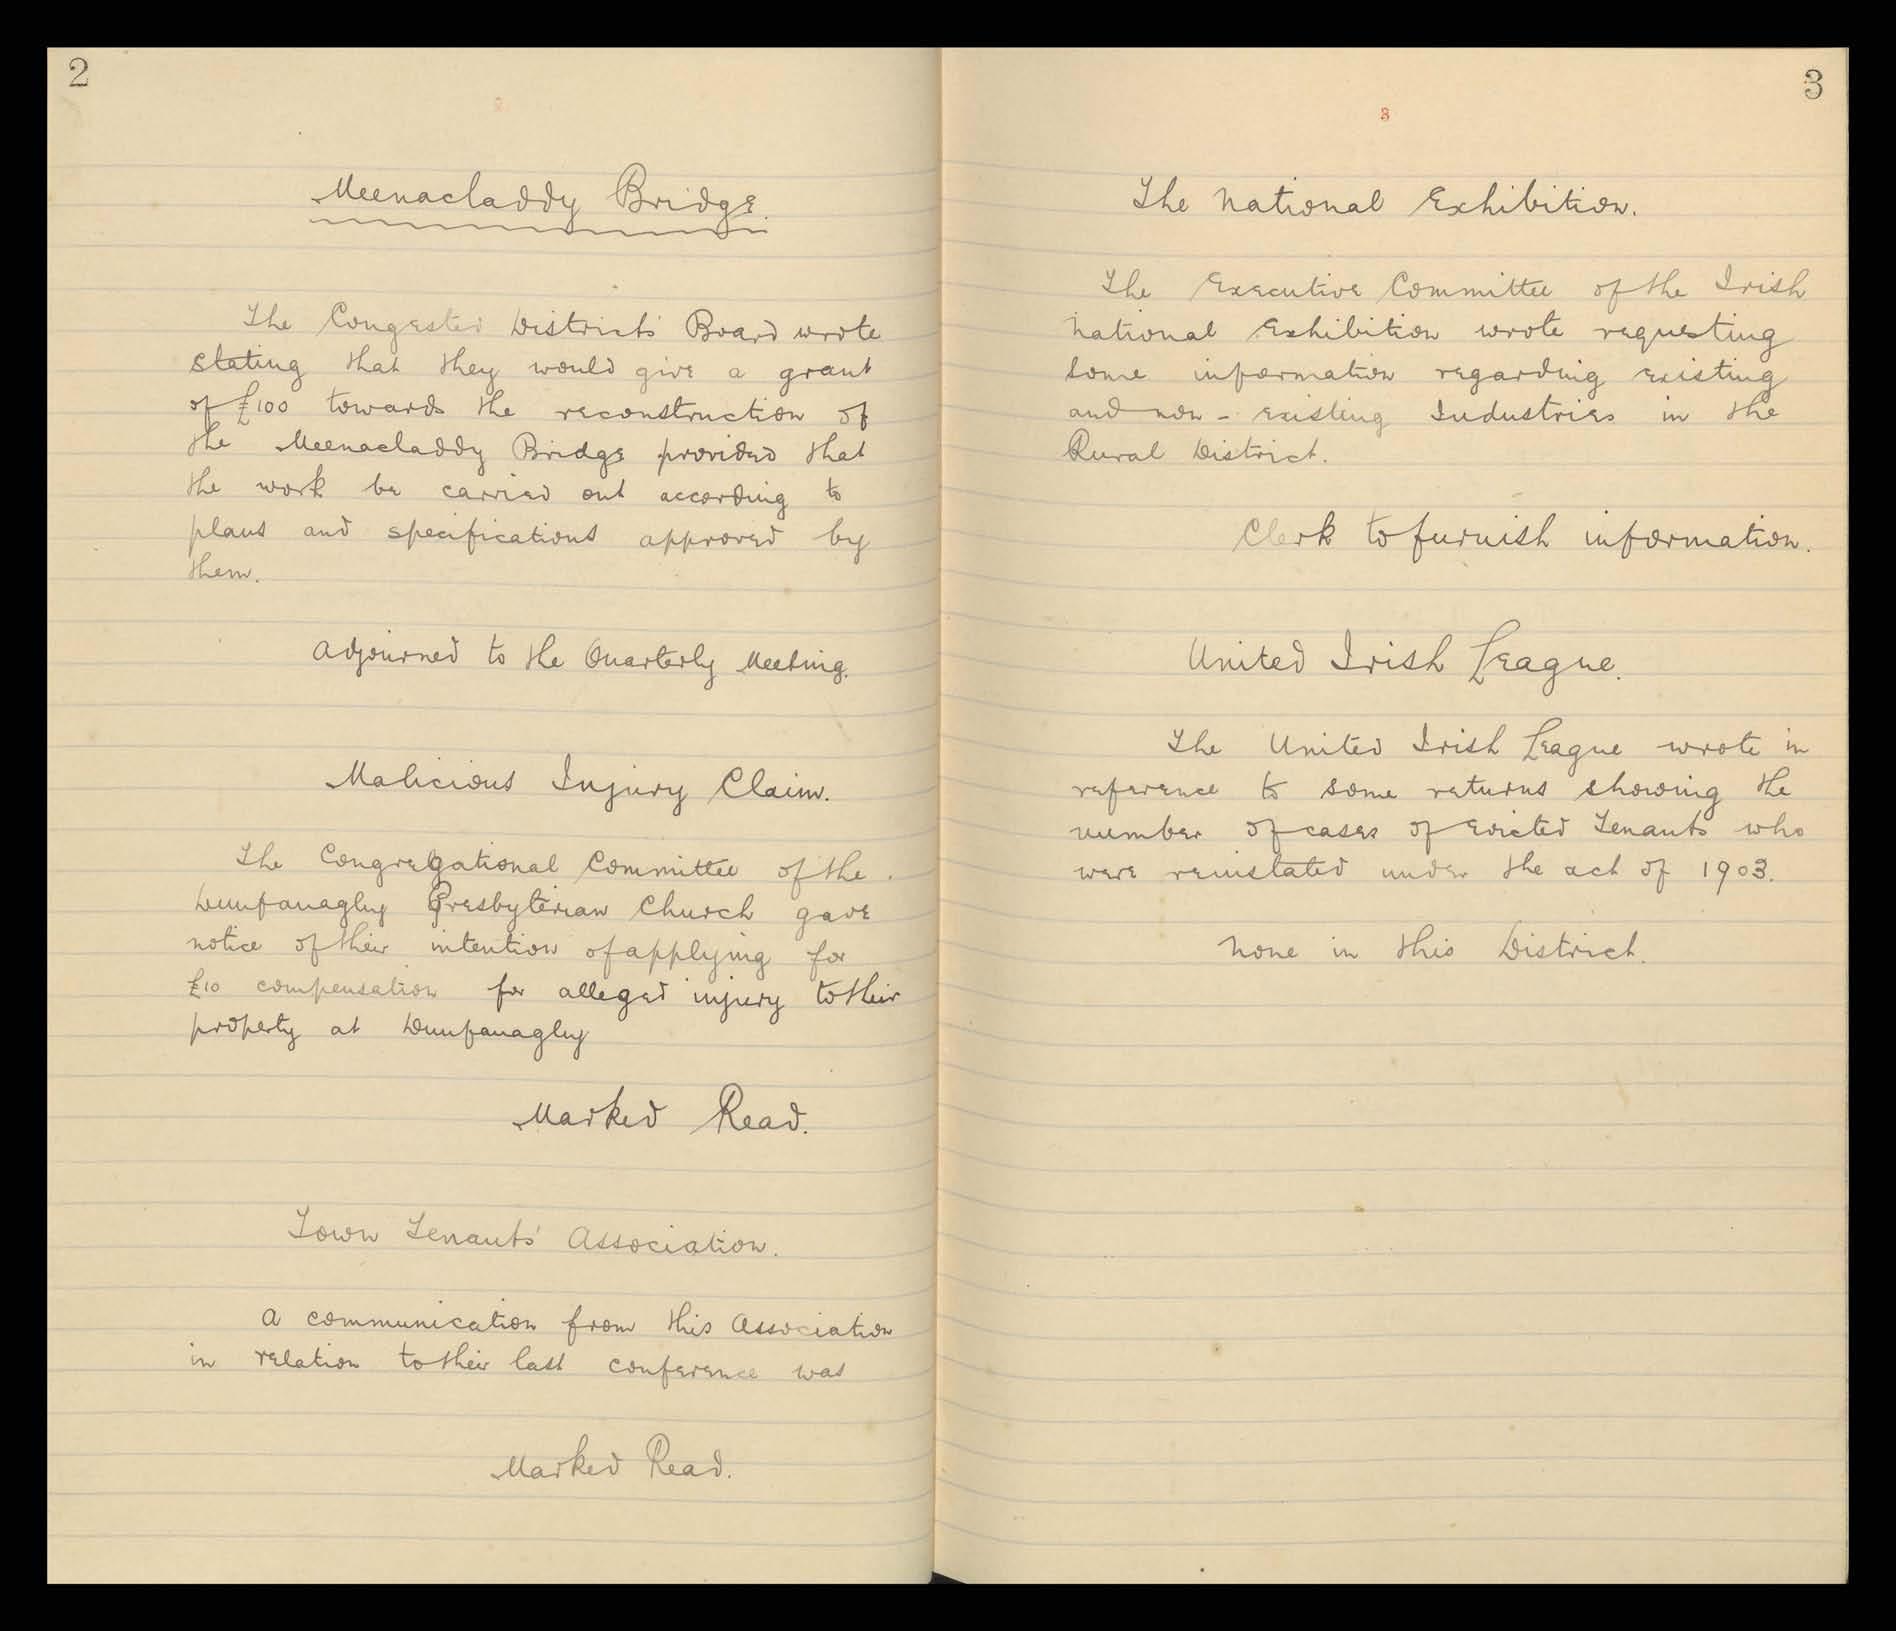 2
Meenacladdy Bridge.
The Congested Districts' Board wrote
stating that they would give a grant
of £100 towards the reconstruction of
the Meenacladdy Bridge provided that
the work be carried out according to
plans and specifications approved by
them.
Adjourned to the Quarterly Meeting.
Malicious Injury Claim.
The Congregational Committee of the
Dunfanaghy Presbyterian Church gave
notice of their intention of applying for
£10 compensation for alleged injury to their
property at Dunfanaghy
Marked Read.
Town Tenants' Association.
A communication from this Association
in relation to their last conference was
Marked Read.
3
3
The National Exhibition.
The Executive Committee of the Irish
National Exhibition wrote requesting
some information regarding existing
and non-existing Industries in the
Rural District.
Clerk to furnish information.
United Irish League.
The United Irish League wrote in
reference to some returns showing the
number of cases of Evicted Tenants who
were reinstated under the act of 1903.
None in this District.